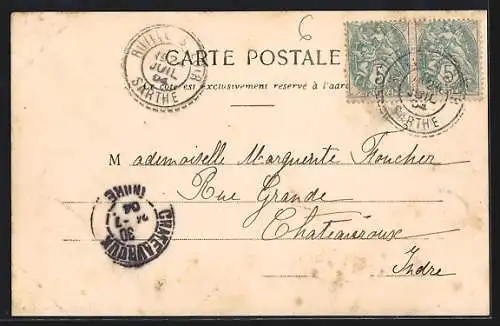 6
CARTE POSTALE
Ce côté est exclusivement réservé à l'adr
JUIL
04
SARTHE
5
5
JUIL
04
SARTHE
Mademoiselle Marguerite Foucher
Rue Grande
Chateauroux
Indre
CHATEAUROUX
30
-7
04
INDRE